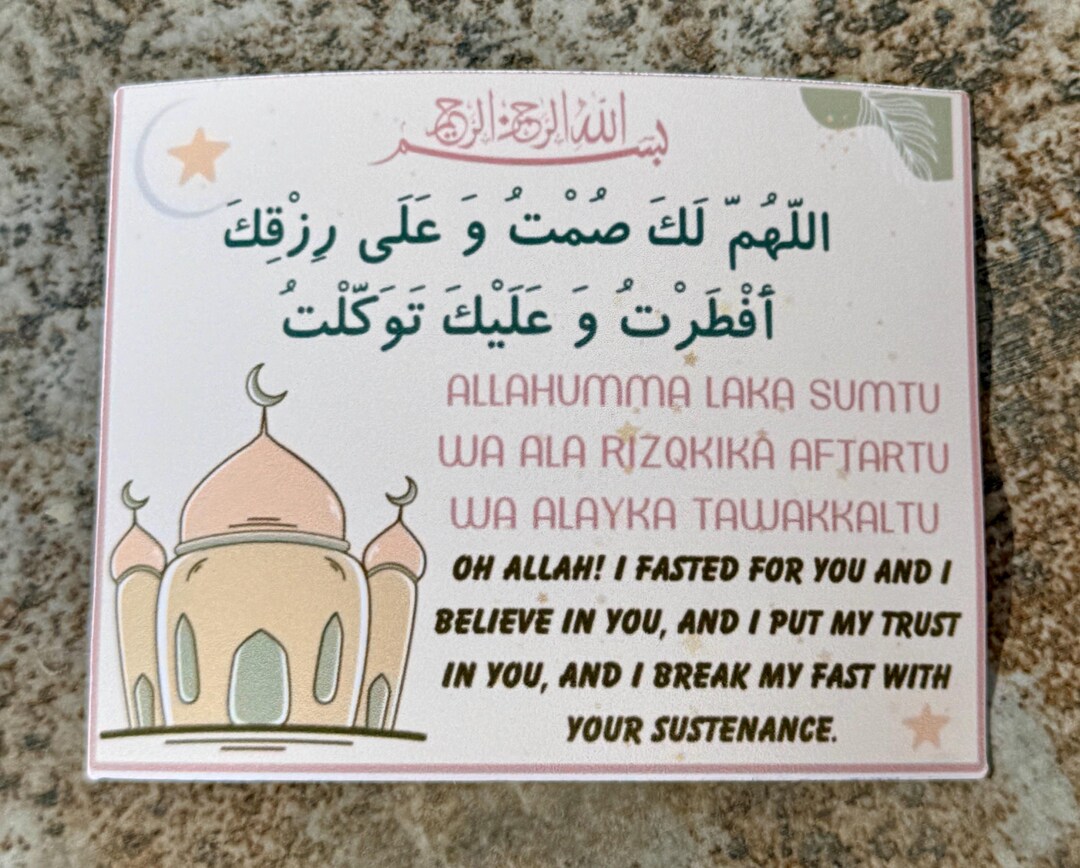 بسم الله الرحمن الرحيم
اللّهُمّ لَكَ صُمْتُ وَ عَلَى رِزْقِكَ
أفْطَرْتُ وَ عَلَيْكَ تَوَكّلْتُ
ALLAHUMMA LAKA SUMTU
WA ALA RIZQKIKA AFTARTU
WA ALAYKA TAWAKKALTU
OH ALLAH! I FASTED FOR YOU AND I
BELIEVE IN YOU, AND I PUT MY TRUST
IN YOU, AND I BREAK MY FAST WITH
YOUR SUSTENANCE.